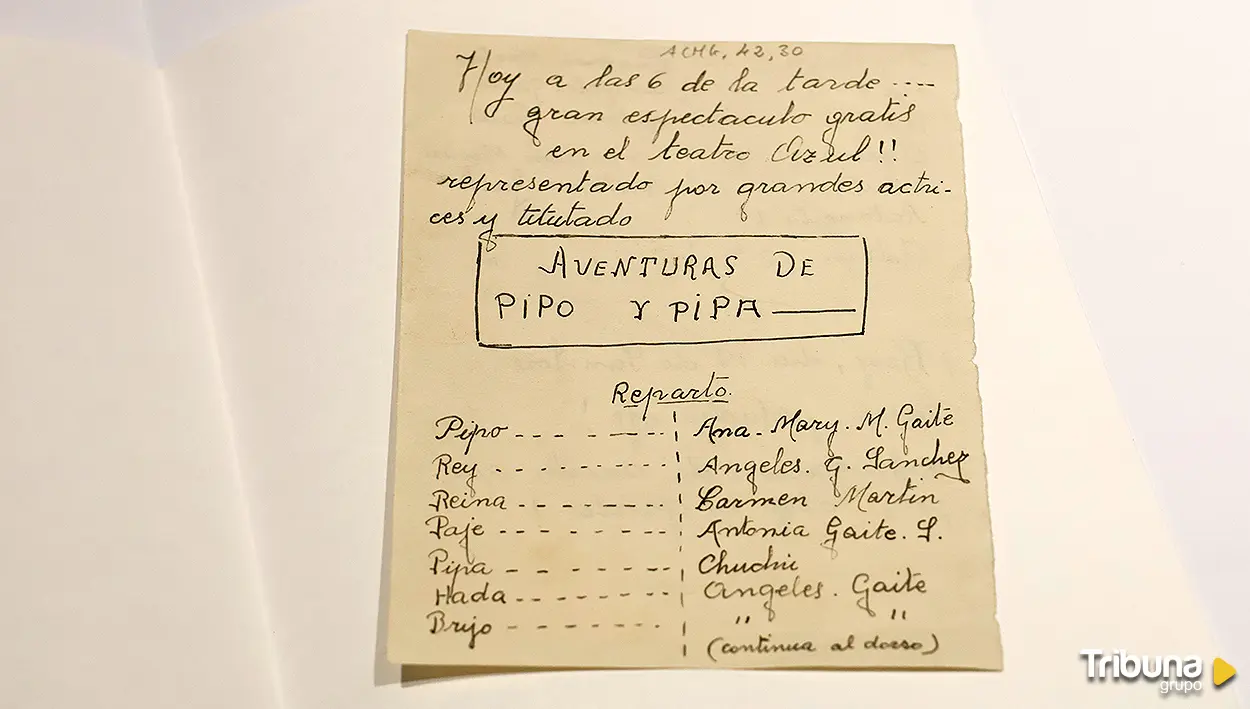 ACMG, 42, 30
Hoy a las 6 de la tarde ----
gran espectaculo gratis
en el teatro Azul!!
representado por grandes actri-
ces y titutado
AVENTURAS DE
PIPO Y PIPA
Reparto.
Pipo - - - - - - - Ana-Mary. M. Gaite
Rey - - - - - - - - Angeles. G. Sanchez
Reina - - - - - - - Carmen Martin
Paje - - - - - - - - Antonia Gaite. S.
Pipa - - - - - - - Chuchi
Hada - - - - - - - Angeles. Gaite
Brijo - - - - - - - " "
(continua al dorso)
Tribuna
grupo